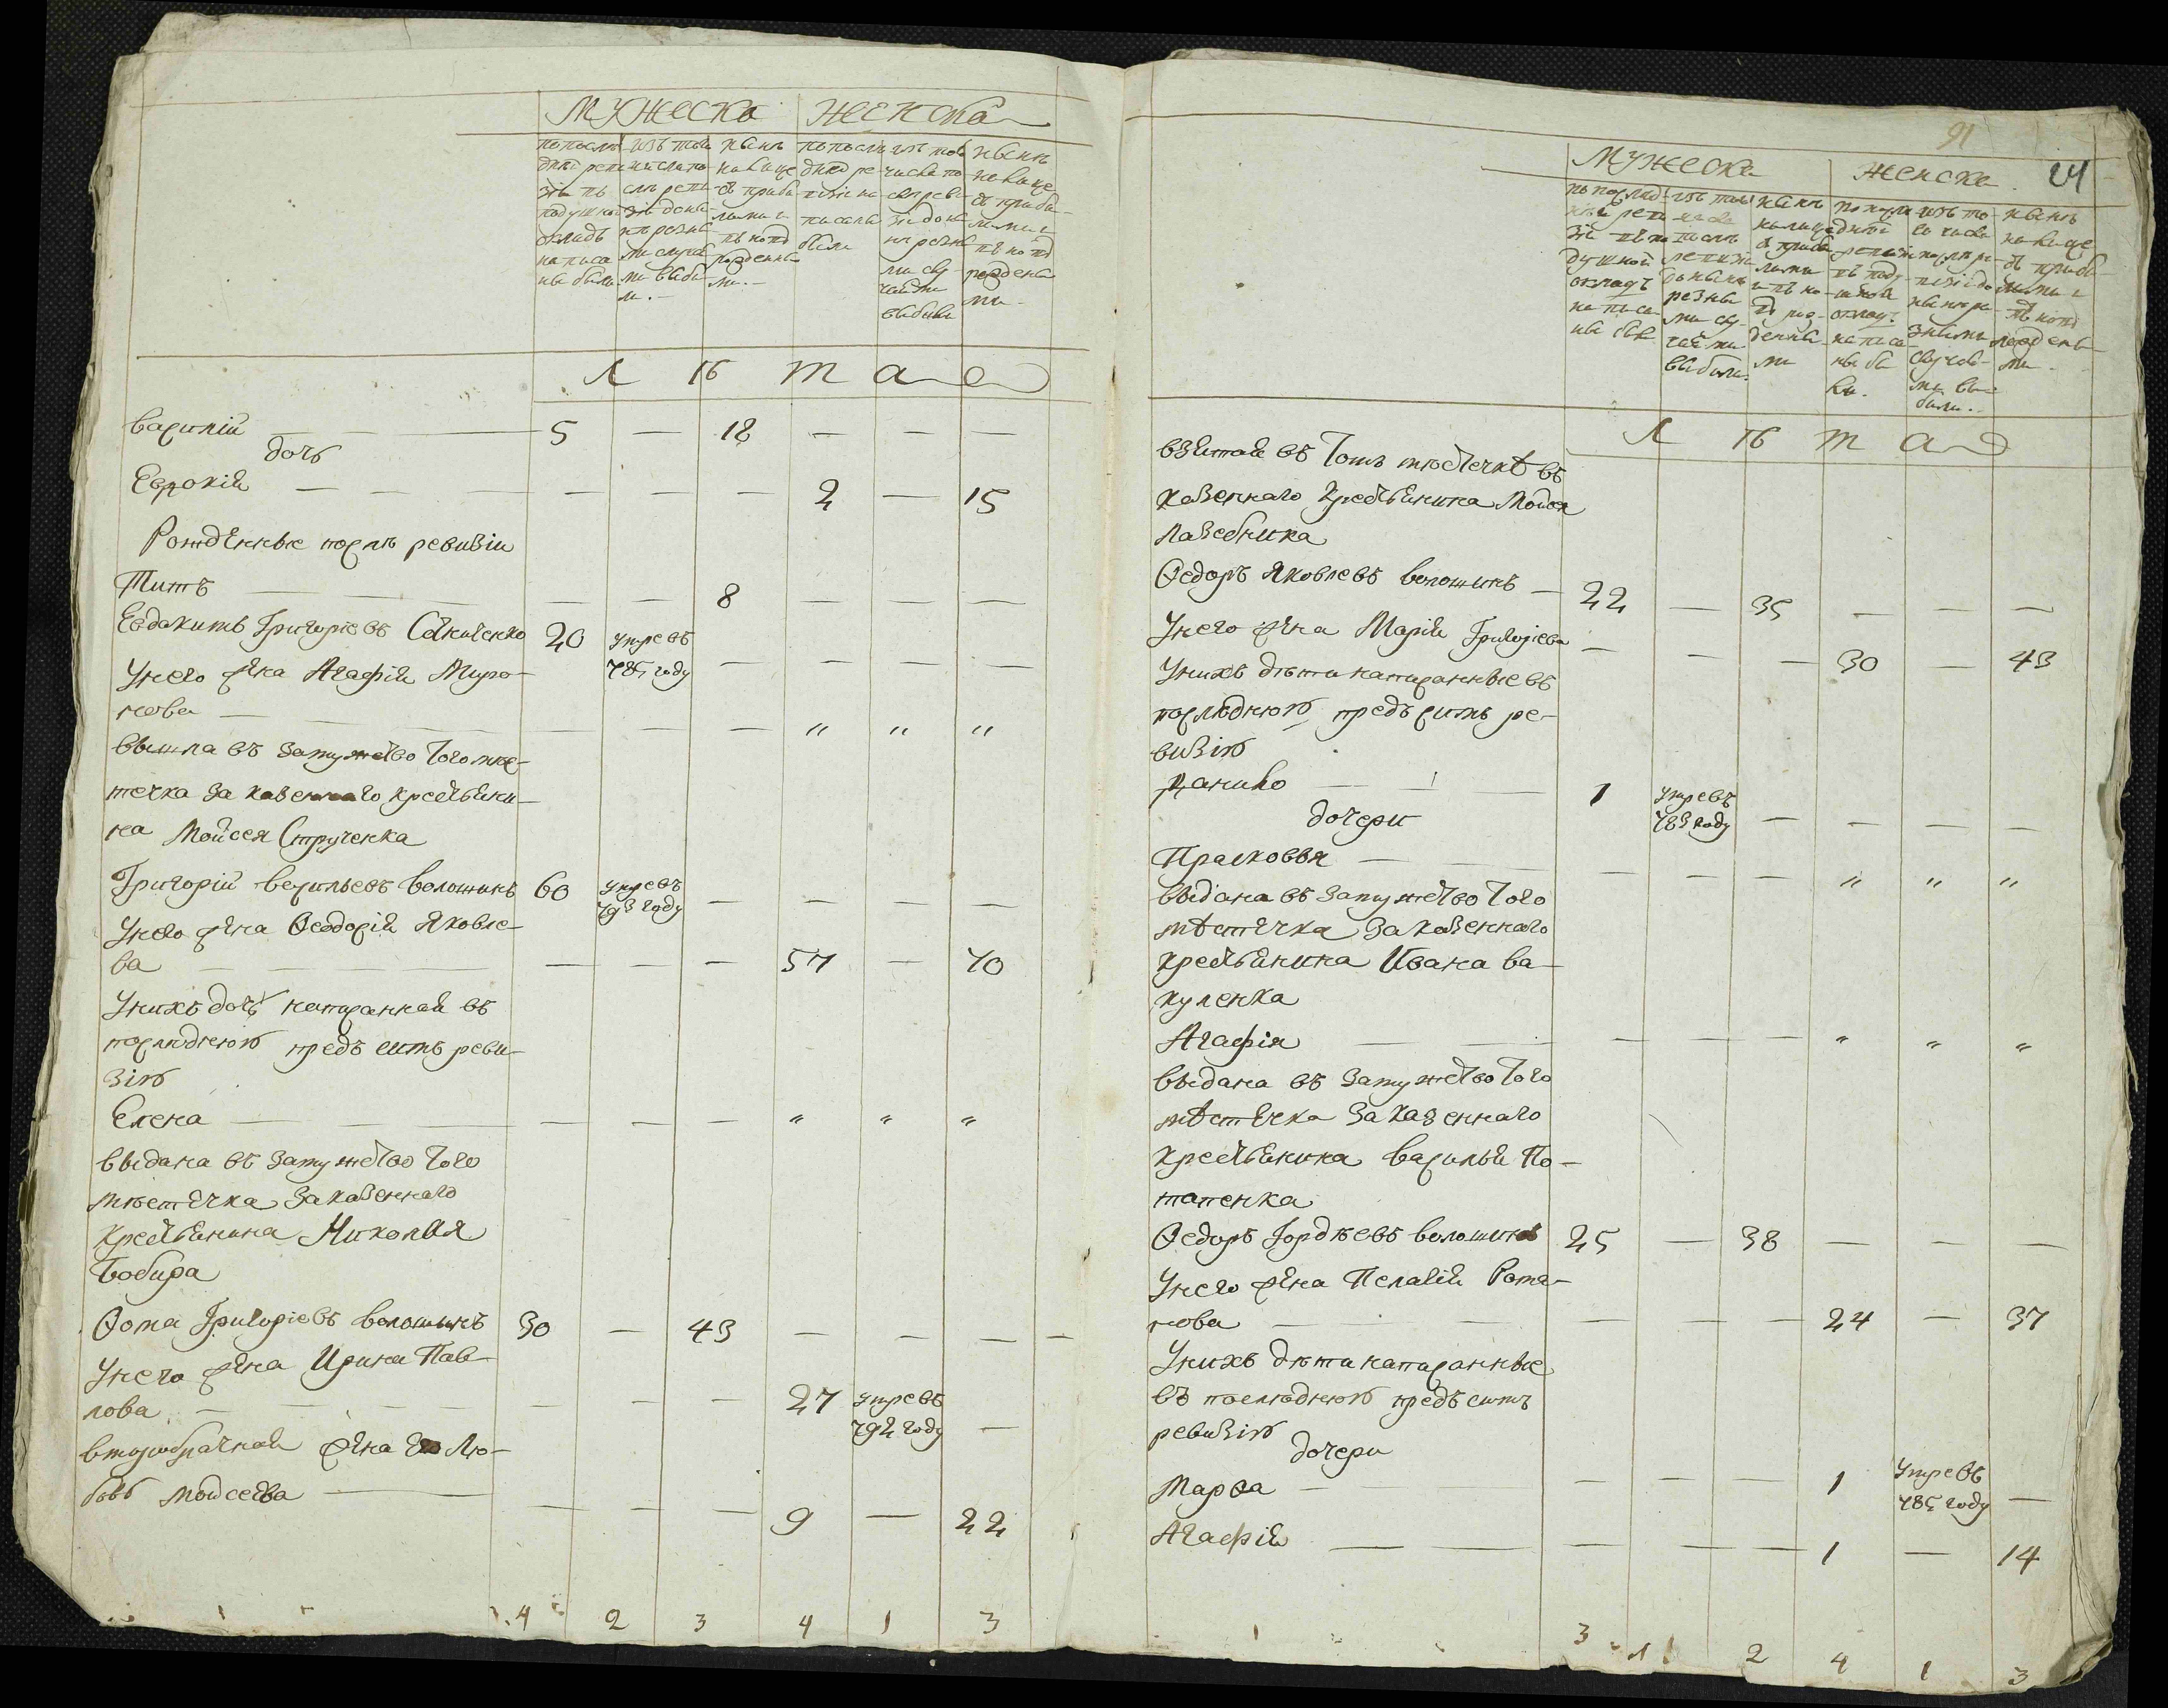 мужеска женска
по послѣдней ревизіи въ подушной окладъ написаны были
изъ того числа послѣ ревизіи до нынѣ разными случаями выбыли
нынѣ на лице съ прибылыми и вновь рожденными
по послѣдней ревизіи написаны были
изъ того числа по слѣ ревизіи до нынѣ разными случайми выбыли
нынѣ на лице съ прибылыми и вновь рожденными
лѣта
василій — 5 — 18 — — —
дочь
Евдокія — — — — 2 — 15
Рожденные послѣ ревизіи
Титъ — — — 8 — — —
Евдокимъ Григорьевъ 20 умре въ
785 году — — — —
У него жена Агафія Миро-
нова — — — „ „ „
вышла въ замужство того мѣс-
течка за казеннаго крестьяни-
на Мойсея Струченка
Григорій васильевъ волошинъ 60 умре въ
793 году — — — —
У него жена Ѳеодосія Яковле-
ва — — — 57 — 70
У нихъ дочь написанная въ
последнюю предъ симъ реви-
зію
Елена — — — — „ „ „
выдана въ замужство того
мѣстечка за казеннаго
крестьянина Николая
Бобира
Ѳома Григоріевъ волошинъ 30 — 43 — — —
У него жена Ирина Пав-
лова — — 27 умре въ
792 году —
второбрачная жена его Лю-
бовь Мойсеева — — — 9 — 22
4 2 3 4 1 3
91
24
мужеска женска
по послѣдней ревизіи въ подушной окладъ написаны были
изъ того числа послѣ ревизіи до нынѣ разными случайми выбыли
нынѣ на лице съ прибылыми и вновь рожденными
по послѣдней ревизіи въ подушной окладъ написаны были
изъ того числа послѣ ревизіи до нынѣ разными случаями выбыли
нынѣ на лице съ прибылыми и вновь рожденными
лѣта
взятая въ томъ мѣстечкѣ въ
казеннаго крестьянина Мойсея
Лазебника
Ѳедоръ Яковлевъ волошинъ — 22 — 35 — — —
У него жена Марія Григоріева — — — 30 — 43
У нихъ дѣти написанные въ
послѣднюю предъ симъ ре-
визію
Данило — 1 умре въ
783 году — — — —
дочери
Прасковья — — — — „ „ „
выдана въ замужство того
мѣстечка за казеннаго
крестьянина Ивана ва-
куленка
Агафія — — — — „ „ „
выдана въ замужство того
мѣстечка за казеннаго
крестьянина василья По-
тапенка
Ѳедоръ Гордѣевъ волошинъ 25 — 38 — — —
У него жена Пелагія Рома-
нова — — — 24 — 37
У нихъ дѣти написанные
въ последнюю предъ симъ
ревизію
дочери
Марѳа — — — — 1 умре въ
785 году —
Агафія — — — — 1 — 14
3 1 2 4 1 3